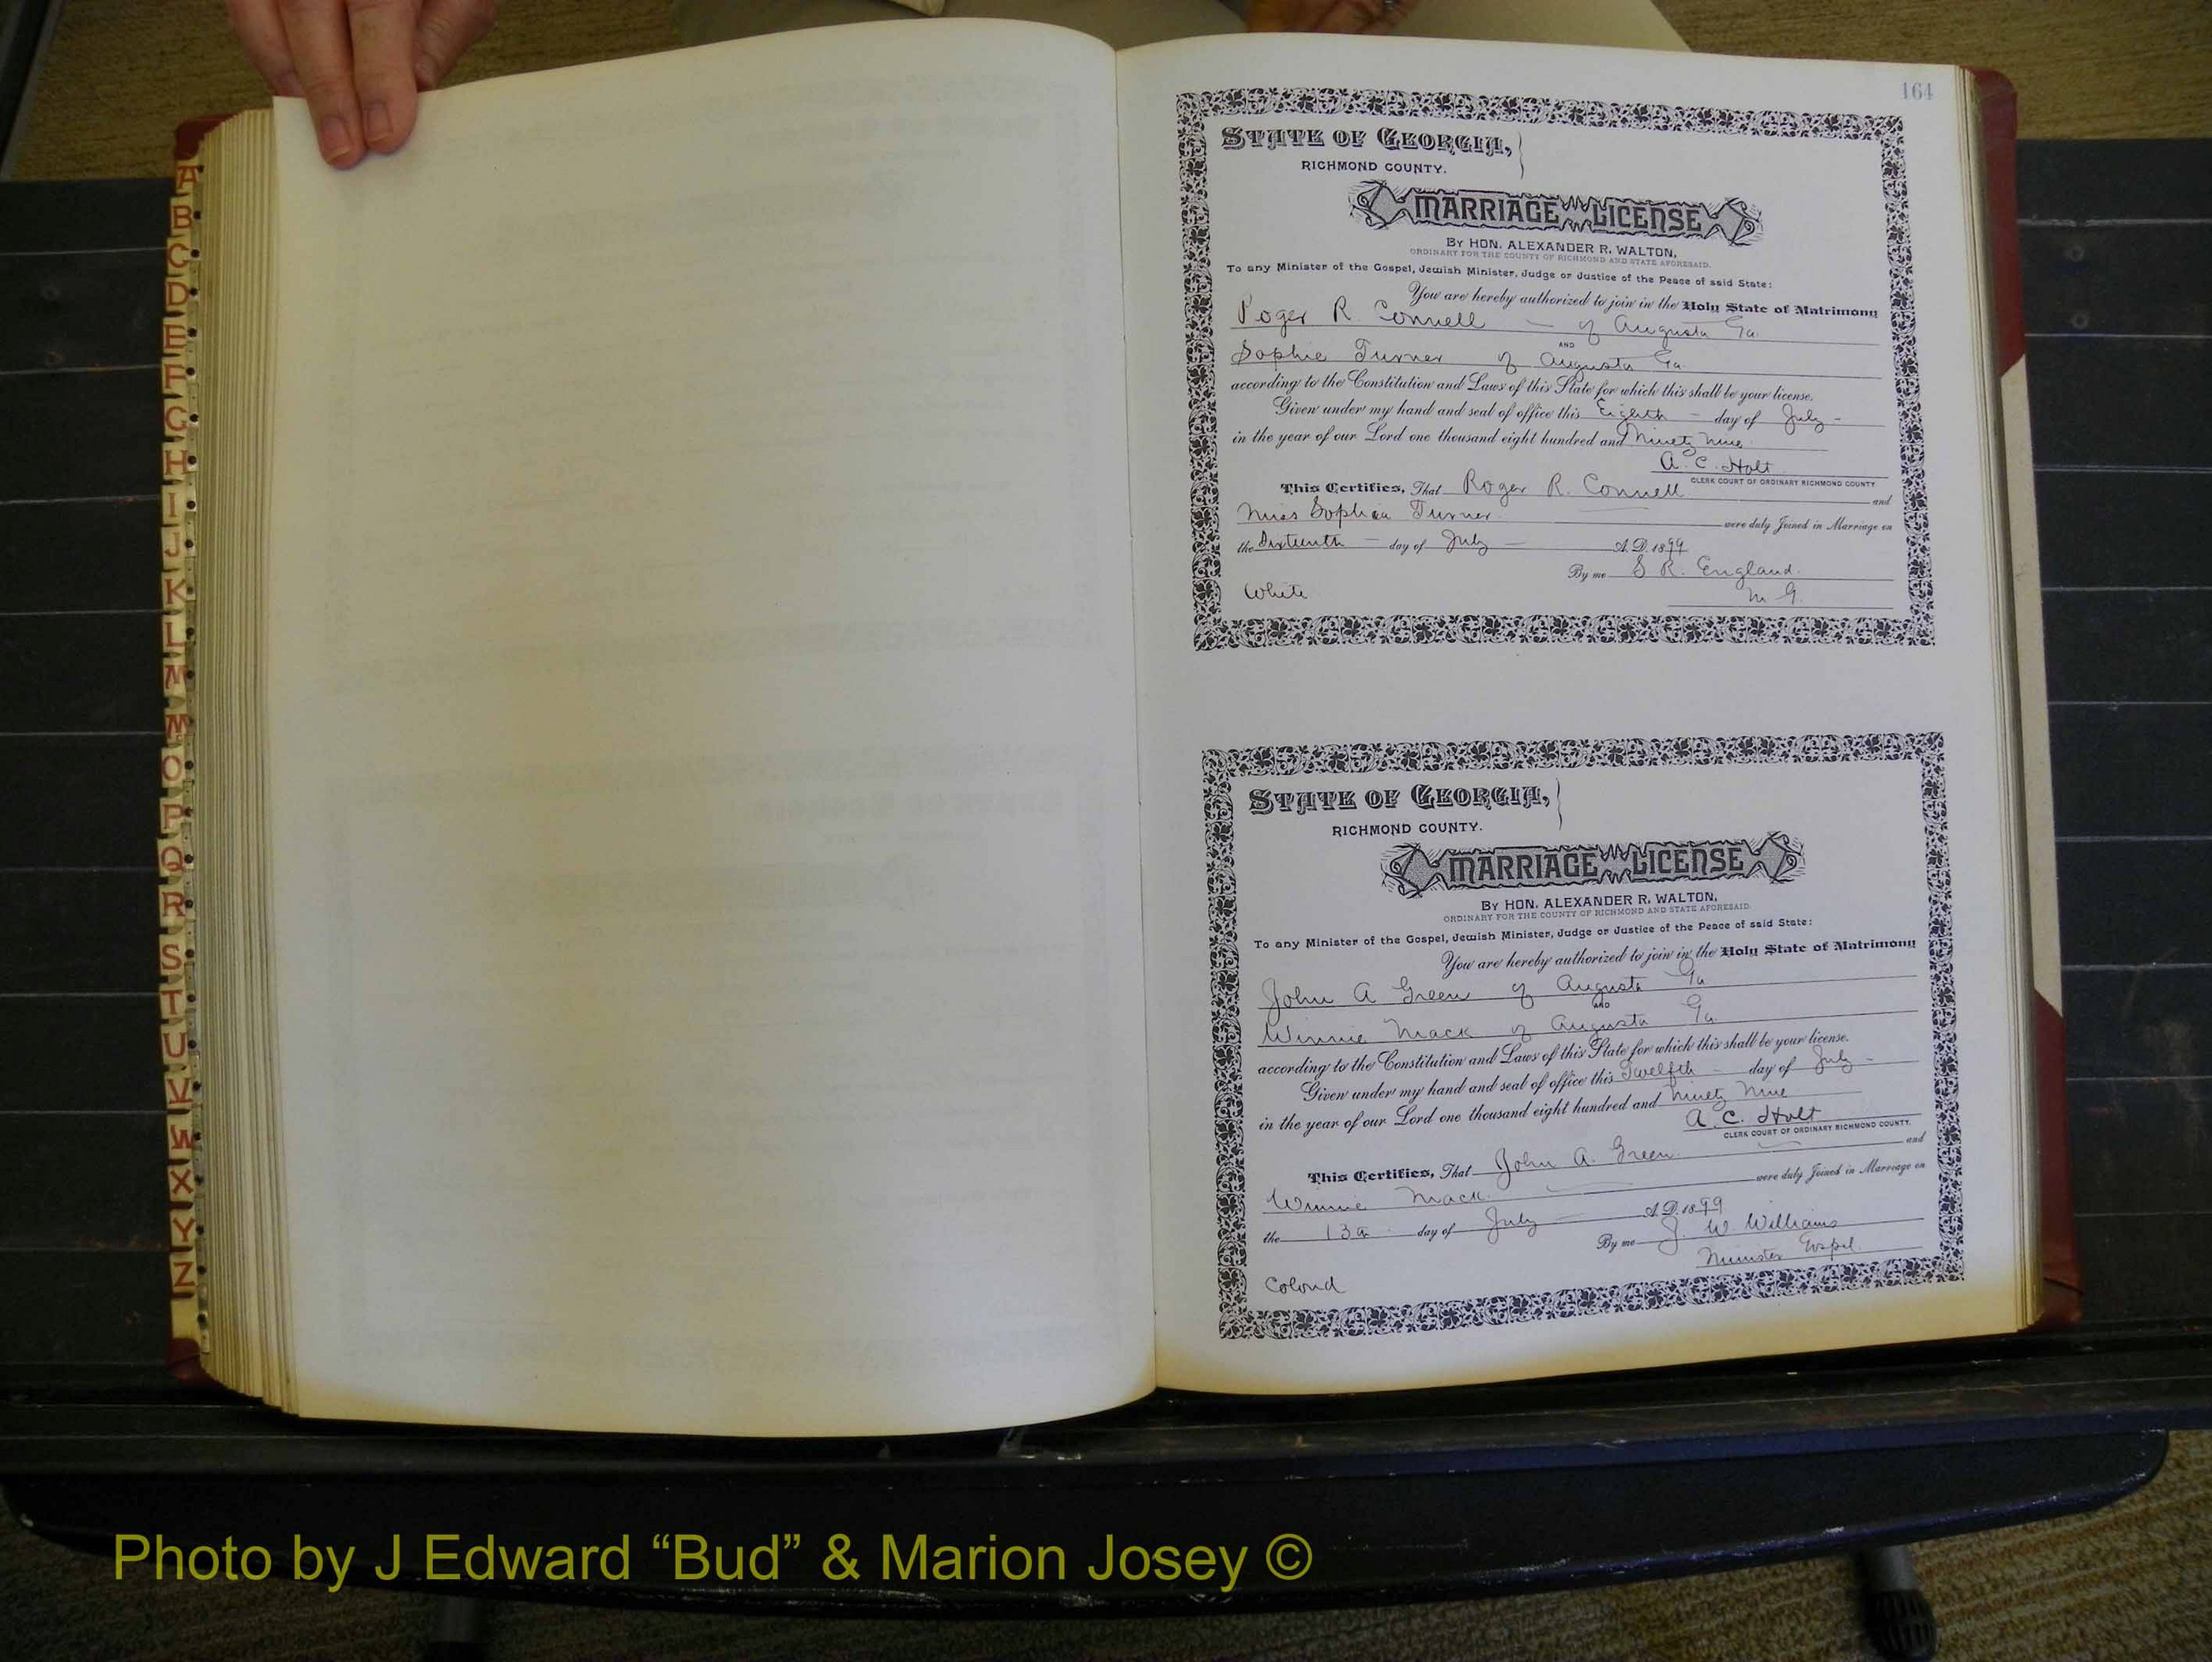 A
B
C
D
E
F
G
H
I
J
K
L
M
M
O
P
Q
R
S
T
U
V
W
X
Y
Z
164
STATE OF GEORGIA,
RICHMOND COUNTY.
MARRIAGE LICENSE
BY HON. ALEXANDER R. WALTON,
ORDINARY FOR THE COUNTY OF RICHMOND AND STATE AFORESAID.
To any Minister of the Gospel, Jewish Minister, Judge or Justice of the Peace of said State:
You are hereby authorized to join in the Holy State of Matrimony
Roger R. Connell — of Augusta Ga.
AND
Sophie Turner of Augusta Ga.
according to the Constitution and Laws of this State for which this shall be your license.
Given under my hand and seal of office this Eighth — day of July —
in the year of our Lord one thousand eight hundred and Ninety Nine.
A. C. Holt
CLERK COURT OF ORDINARY RICHMOND COUNTY
This Certifies, That Roger R. Connell and
Miss Sophia Turner were duly Joined in Marriage on
the Sixteenth — day of July — A. D. 1899
By me S R. England.
White M G.
STATE OF GEORGIA,
RICHMOND COUNTY.
MARRIAGE LICENSE
BY HON. ALEXANDER R. WALTON,
ORDINARY FOR THE COUNTY OF RICHMOND AND STATE AFORESAID.
To any Minister of the Gospel, Jewish Minister, Judge or Justice of the Peace of said State:
You are hereby authorized to join in the Holy State of Matrimony
John A Green of Augusta Ga
AND
Winnie Mack of Augusta Ga
according to the Constitution and Laws of this State for which this shall be your license.
Given under my hand and seal of office this Twelfth — day of July —
in the year of our Lord one thousand eight hundred and Ninety Nine
A. C. Holt
CLERK COURT OF ORDINARY RICHMOND COUNTY.
This Certifies, That John A. Green and
Winnie Mack were duly Joined in Marriage on
the 13th day of July A. D. 1899
By me J. W Williams
Minister Gospel.
Colord
Photo by J Edward “Bud” & Marion Josey ©